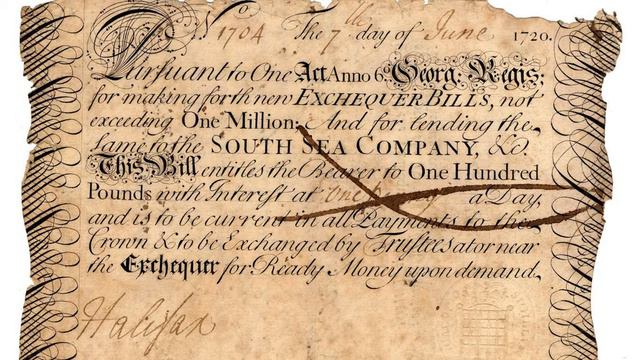 No 1704 The 7th day of June 1720.
Pursuant to One Act Anno 6. Georg: Regis;
for making forth new EXCHEQUER BILLS, not
exceeding One Million; And for lending the
Same to the SOUTH SEA COMPANY, &c.
This Bill entitles the Bearer to One Hundred
Pounds with Interest at One a Day,
and is to be current in all Payments to the
Crown & to be Exchanged by Trustees at or near
the Exchequer for Ready Money upon demand.
Halifax